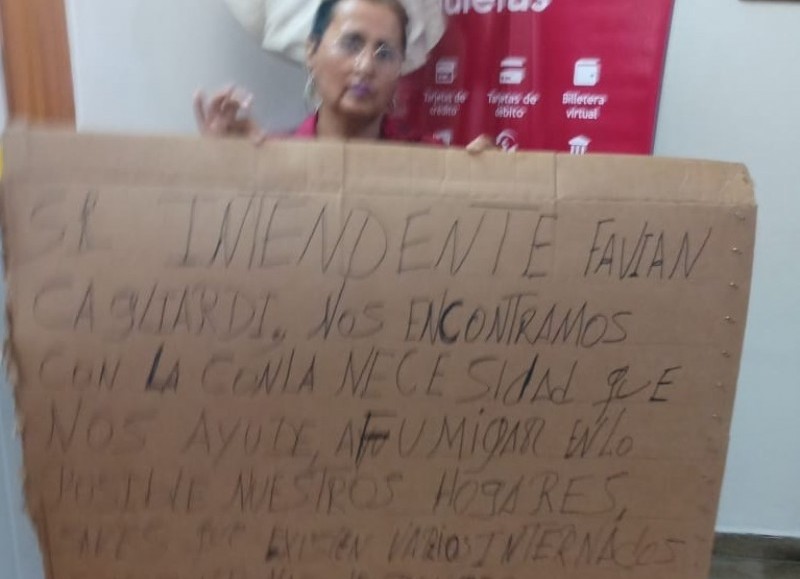 Tarjetas de
crédito
Tarjetas de
débito
Billetera
virtual
SR INTENDENTE FAVIAN
CAGLIARDI. NOS ENCONTRAMOS
CON LA CONLA NECESIDAD QUE
NOS AYUDE, A FUMIGAR EN LO
POSIBLE NUESTROS HOGARES,
EXISTEN VARIOS INTERNADOS